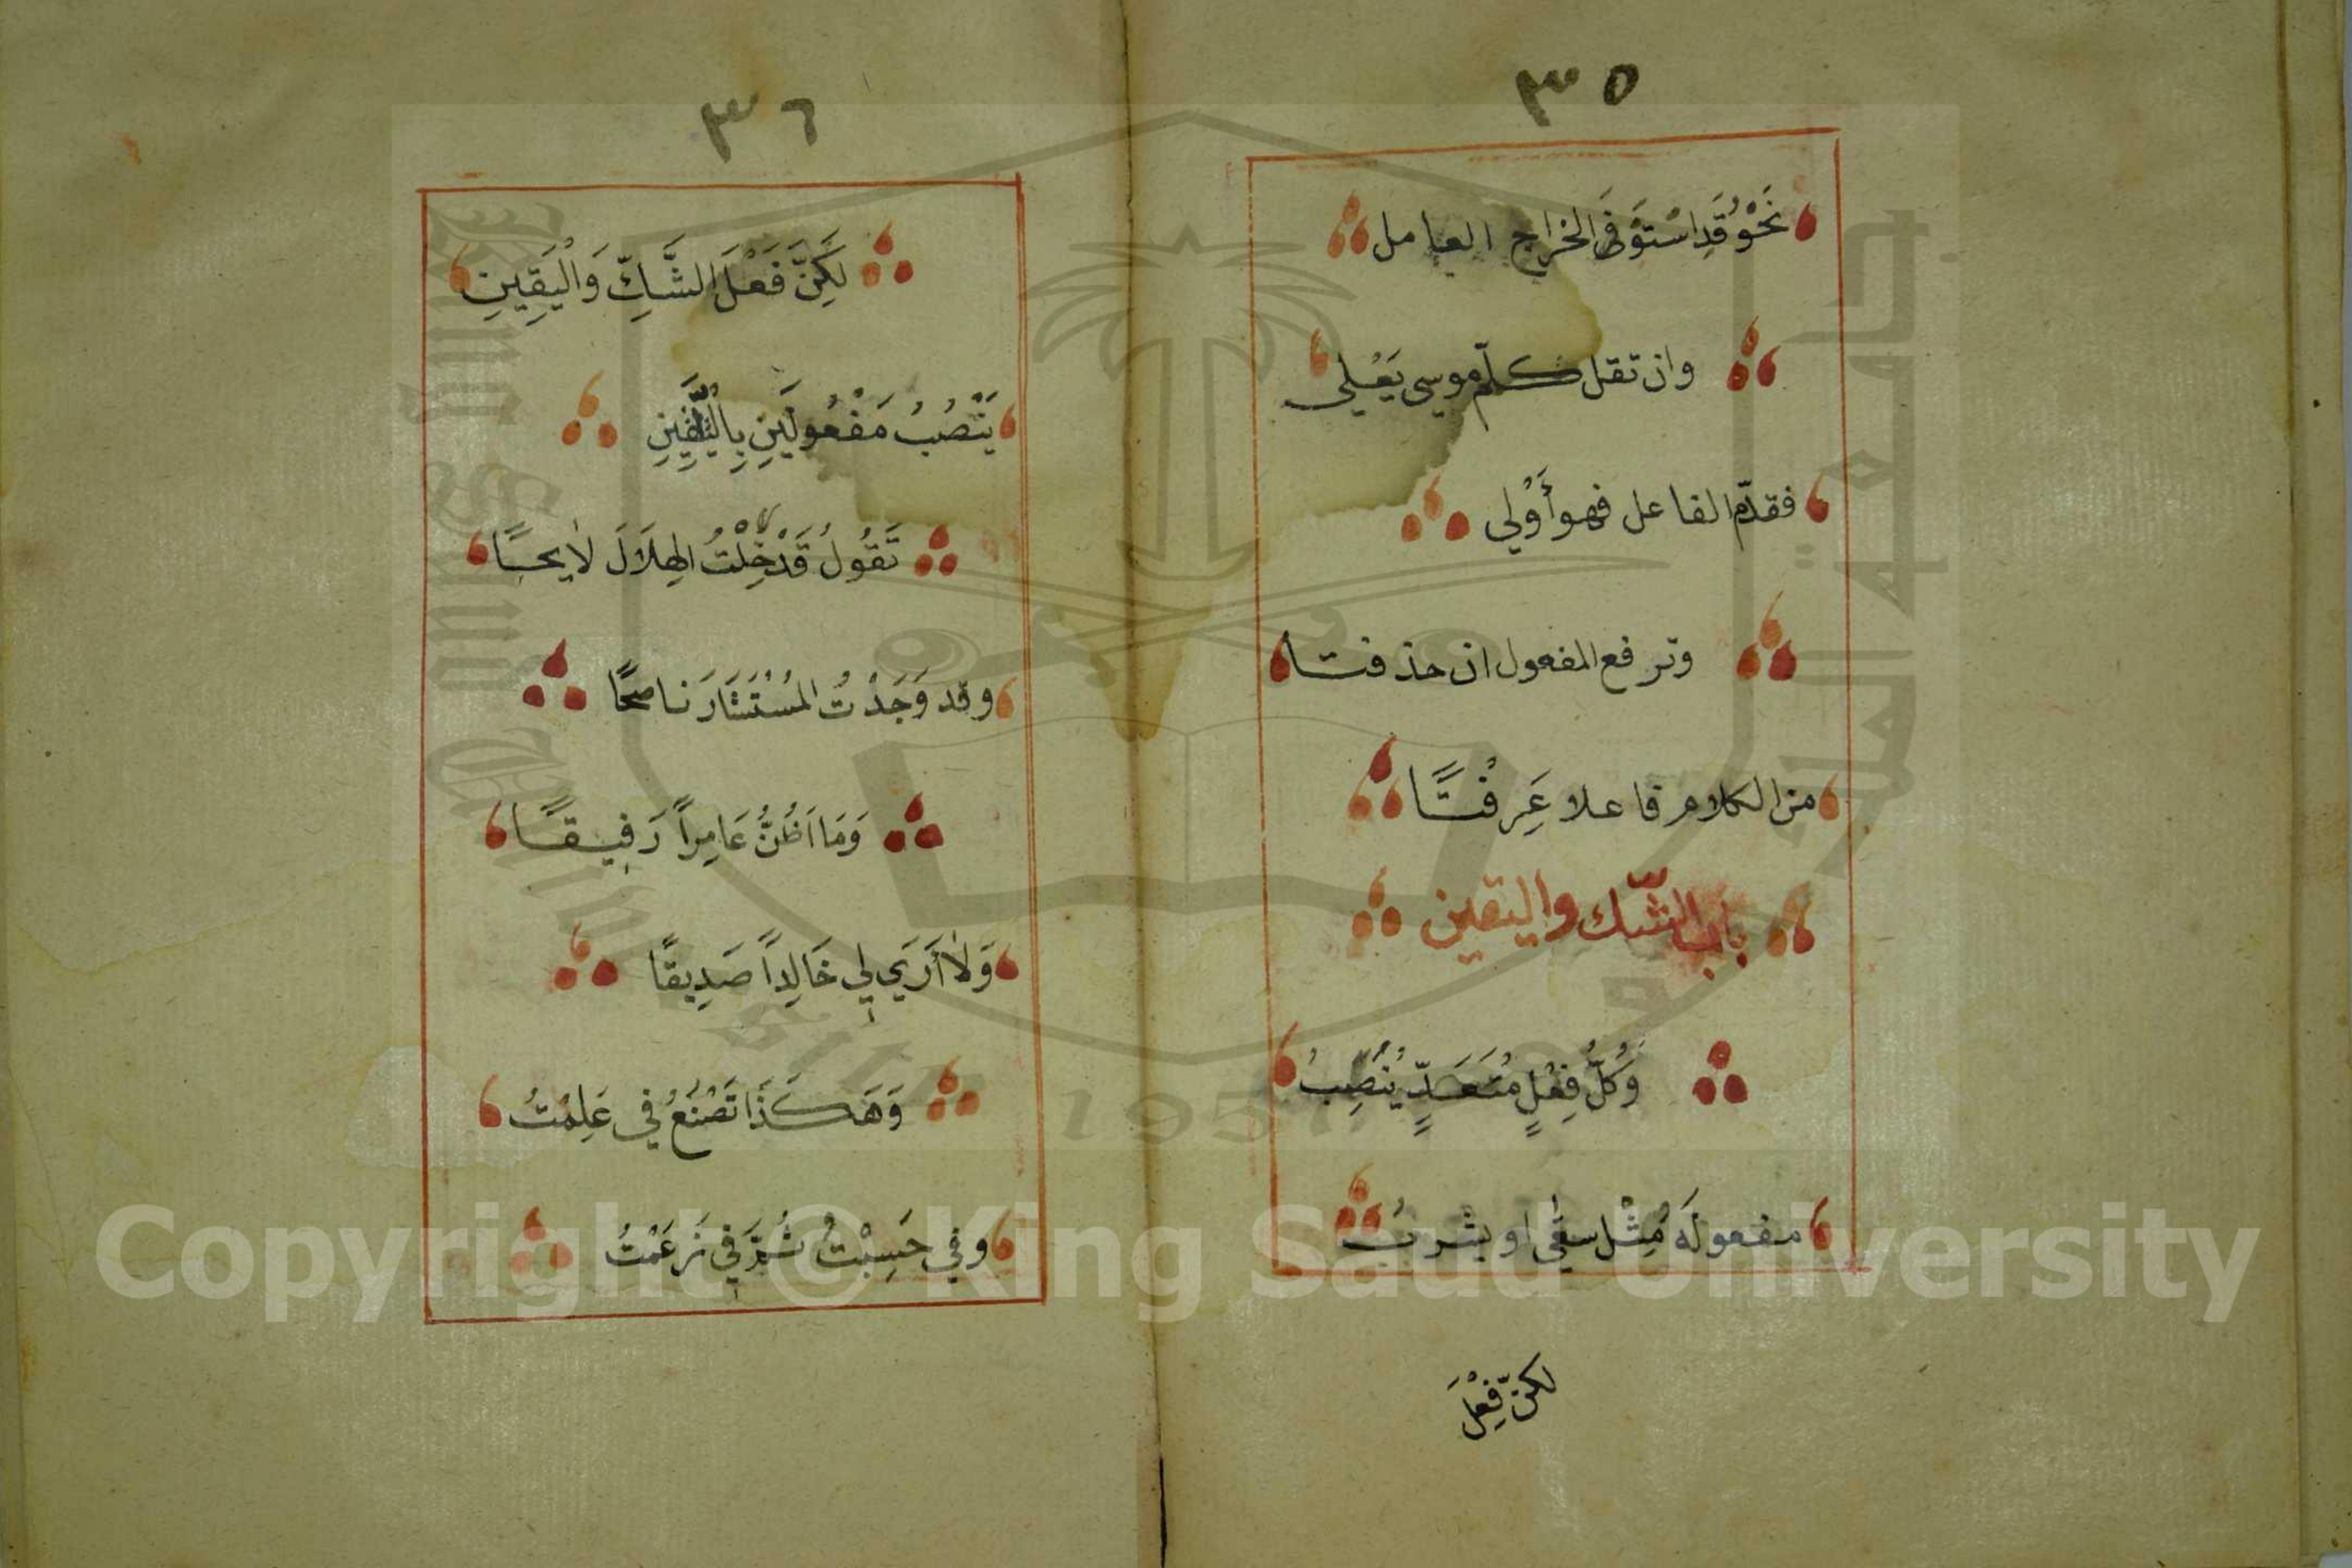 ٣٥
نَحْوُ قَدِ اسْتَوْفَى الخراج العامل
وان تقل كلّم موسى يَعْلى
فقدّم الفاعل فهو أَوْلى
وترفع المفعول ان حذفتا
من الكلام فاعلا عَرِفْتًا
باب الشّك واليقين
وَكُلُّ فِعْلٍ مُتَعَدٍّ يَنْصِبُ
مفعولَهُ مِثْل سقى او يشربُ
لكنّ فِعْلَ
٣٦
لَكِنَّ فَعْلَ الشَّكِّ وَالْيَقِينِ
يَنْصُبُ مَفْعُولَيْنِ بِالتَّلْقِينِ
تَقُولُ قَدْ خِلْتُ الهِلَالَ لَايحًا
وقد وَجَدْتُ المُسْتَشَارَ ناصحًا
وَمَا اَظُنُّ عَامِراً رَفِيقًا
وَلَا أَرَى لِي خَالِداً صَدِيقًا
وَهَكَذَا تَصْنَعُ في عَلِمْتُ
وفي حَسِبْتُ ثُمَّ في زَعَمْتُ
جامعة الملك سعود
King Saud University
1957
Copyright © King Saud University